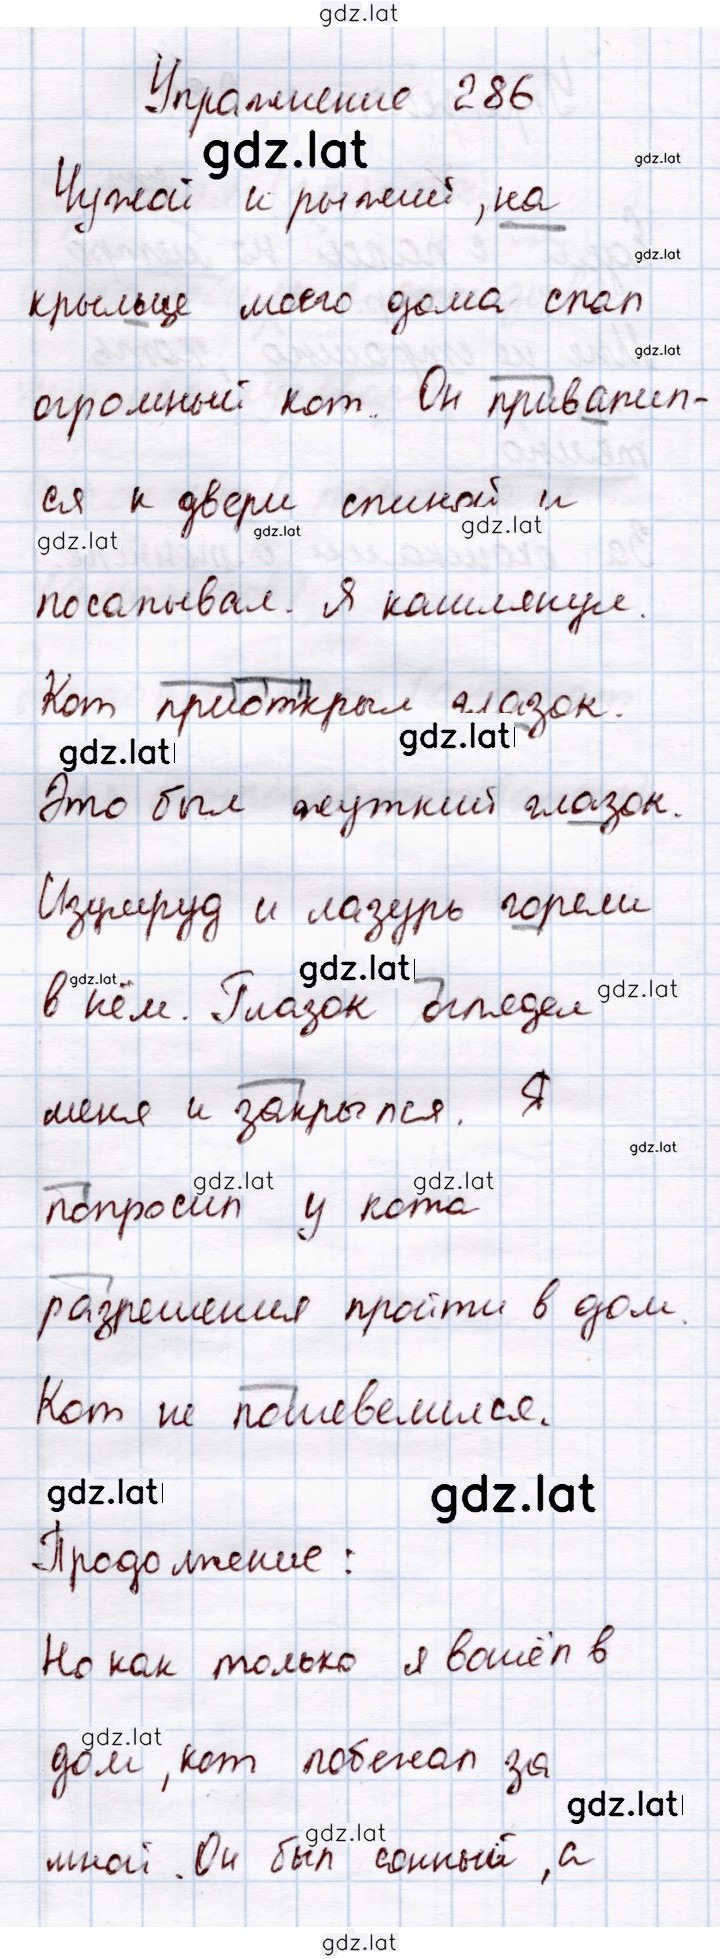 gdz.lat
Упражнение 286
gdz.lat
gdz.lat
Чужой и рыжий, на
gdz.lat
крыльце моего дома спал
gdz.lat
огромный кот. Он привалил-
ся к двери спиной и
gdz.lat gdz.lat gdz.lat
посапывал. Я кашлянул.
Кот приоткрыл глазок.
gdz.lat gdz.lat
Это был жуткий глазок.
Изумруд и лазурь горели
gdz.lat gdz.lat gdz.lat
в нём. Глазок оглядел
меня и закрылся. Я
gdz.lat
gdz.lat gdz.lat
попросил у кота
разрешения пройти в дом.
Кот не пошевелился.
gdz.lat gdz.lat
Продолжение:
Но как только я вошёл в
gdz.lat
дом, кот побежал за
gdz.lat
gdz.lat
мной. Он был сонный, а
gdz.lat